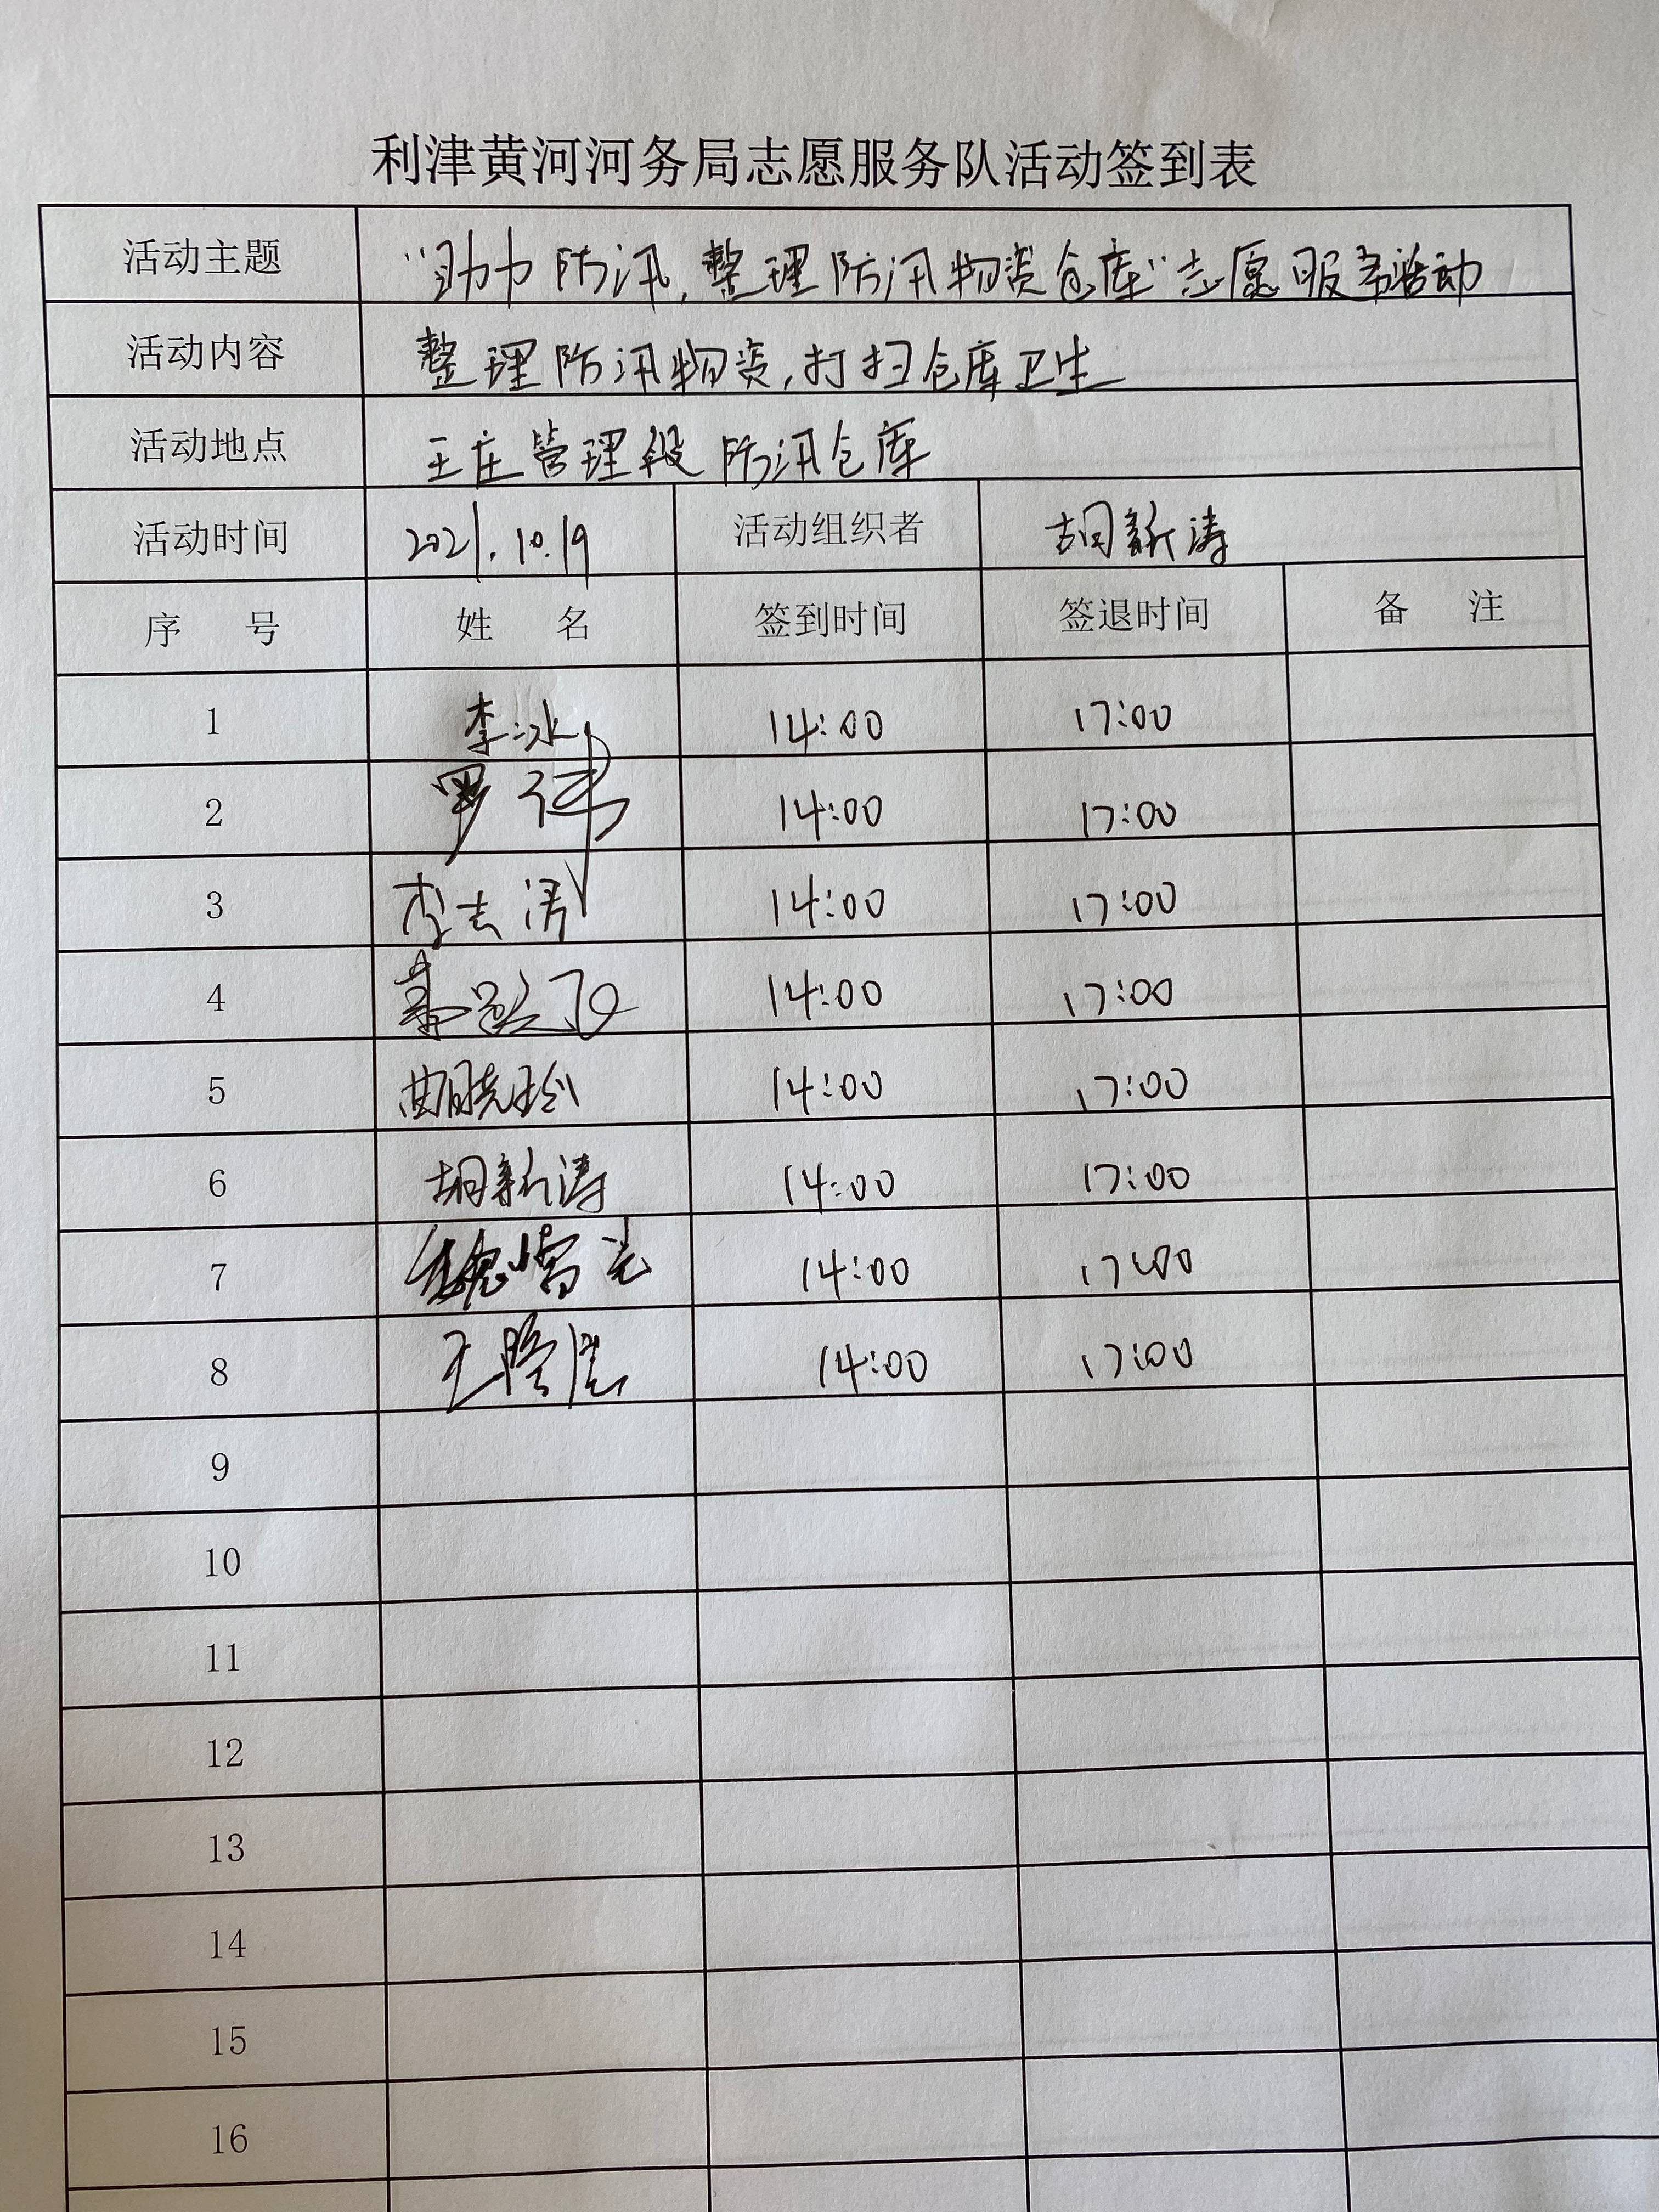 利津黄河河务局志愿服务队活动签到表
活动主题 “助力防汛,整理防汛物资仓库”志愿服务活动
活动内容 整理防汛物资,打扫仓库卫生
活动地点 王庄管理段防汛仓库
活动时间 2021.10.19 活动组织者 胡新涛
序号 姓名 签到时间 签退时间 备注
1 李冰 14:00 17:00
2 罗伟 14:00 17:00
3 李 清 14:00 17:00
4 14:00 17:00
5 曲晓玲 14:00 17:00
6 胡新涛 14:00 17:00
7 14:00 17:00
8 王 14:00 17:00
9
10
11
12
13
14
15
16